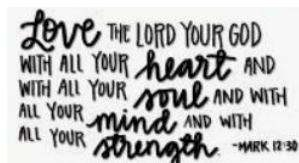 Love THE LORD YOUR GOD
WITH ALL YOUR heart AND
WITH ALL YOUR soul AND WITH
ALL YOUR mind AND WITH
ALL YOUR strength. -MARK 12:30